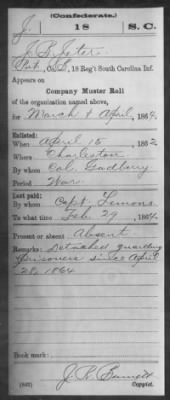 (Confederate.)
J 18 S. C.
J. B. Jeter
Pvt, Co. , 18 Reg't South Carolina Inf.
Appears on
Company Muster Roll
of the organization named above,
for March & April, 1864.
Enlisted:
When April 15, 1862
Where Charleston
By whom Col. Gadberry
Period War
Last paid:
By whom Capt. Lemons
To what time Feb. 29, 1864.
Present or absent Absent
Remarks: Detached guarding
prisoners since April
28, 1864
Book mark:
(642) J. R. Copyist.